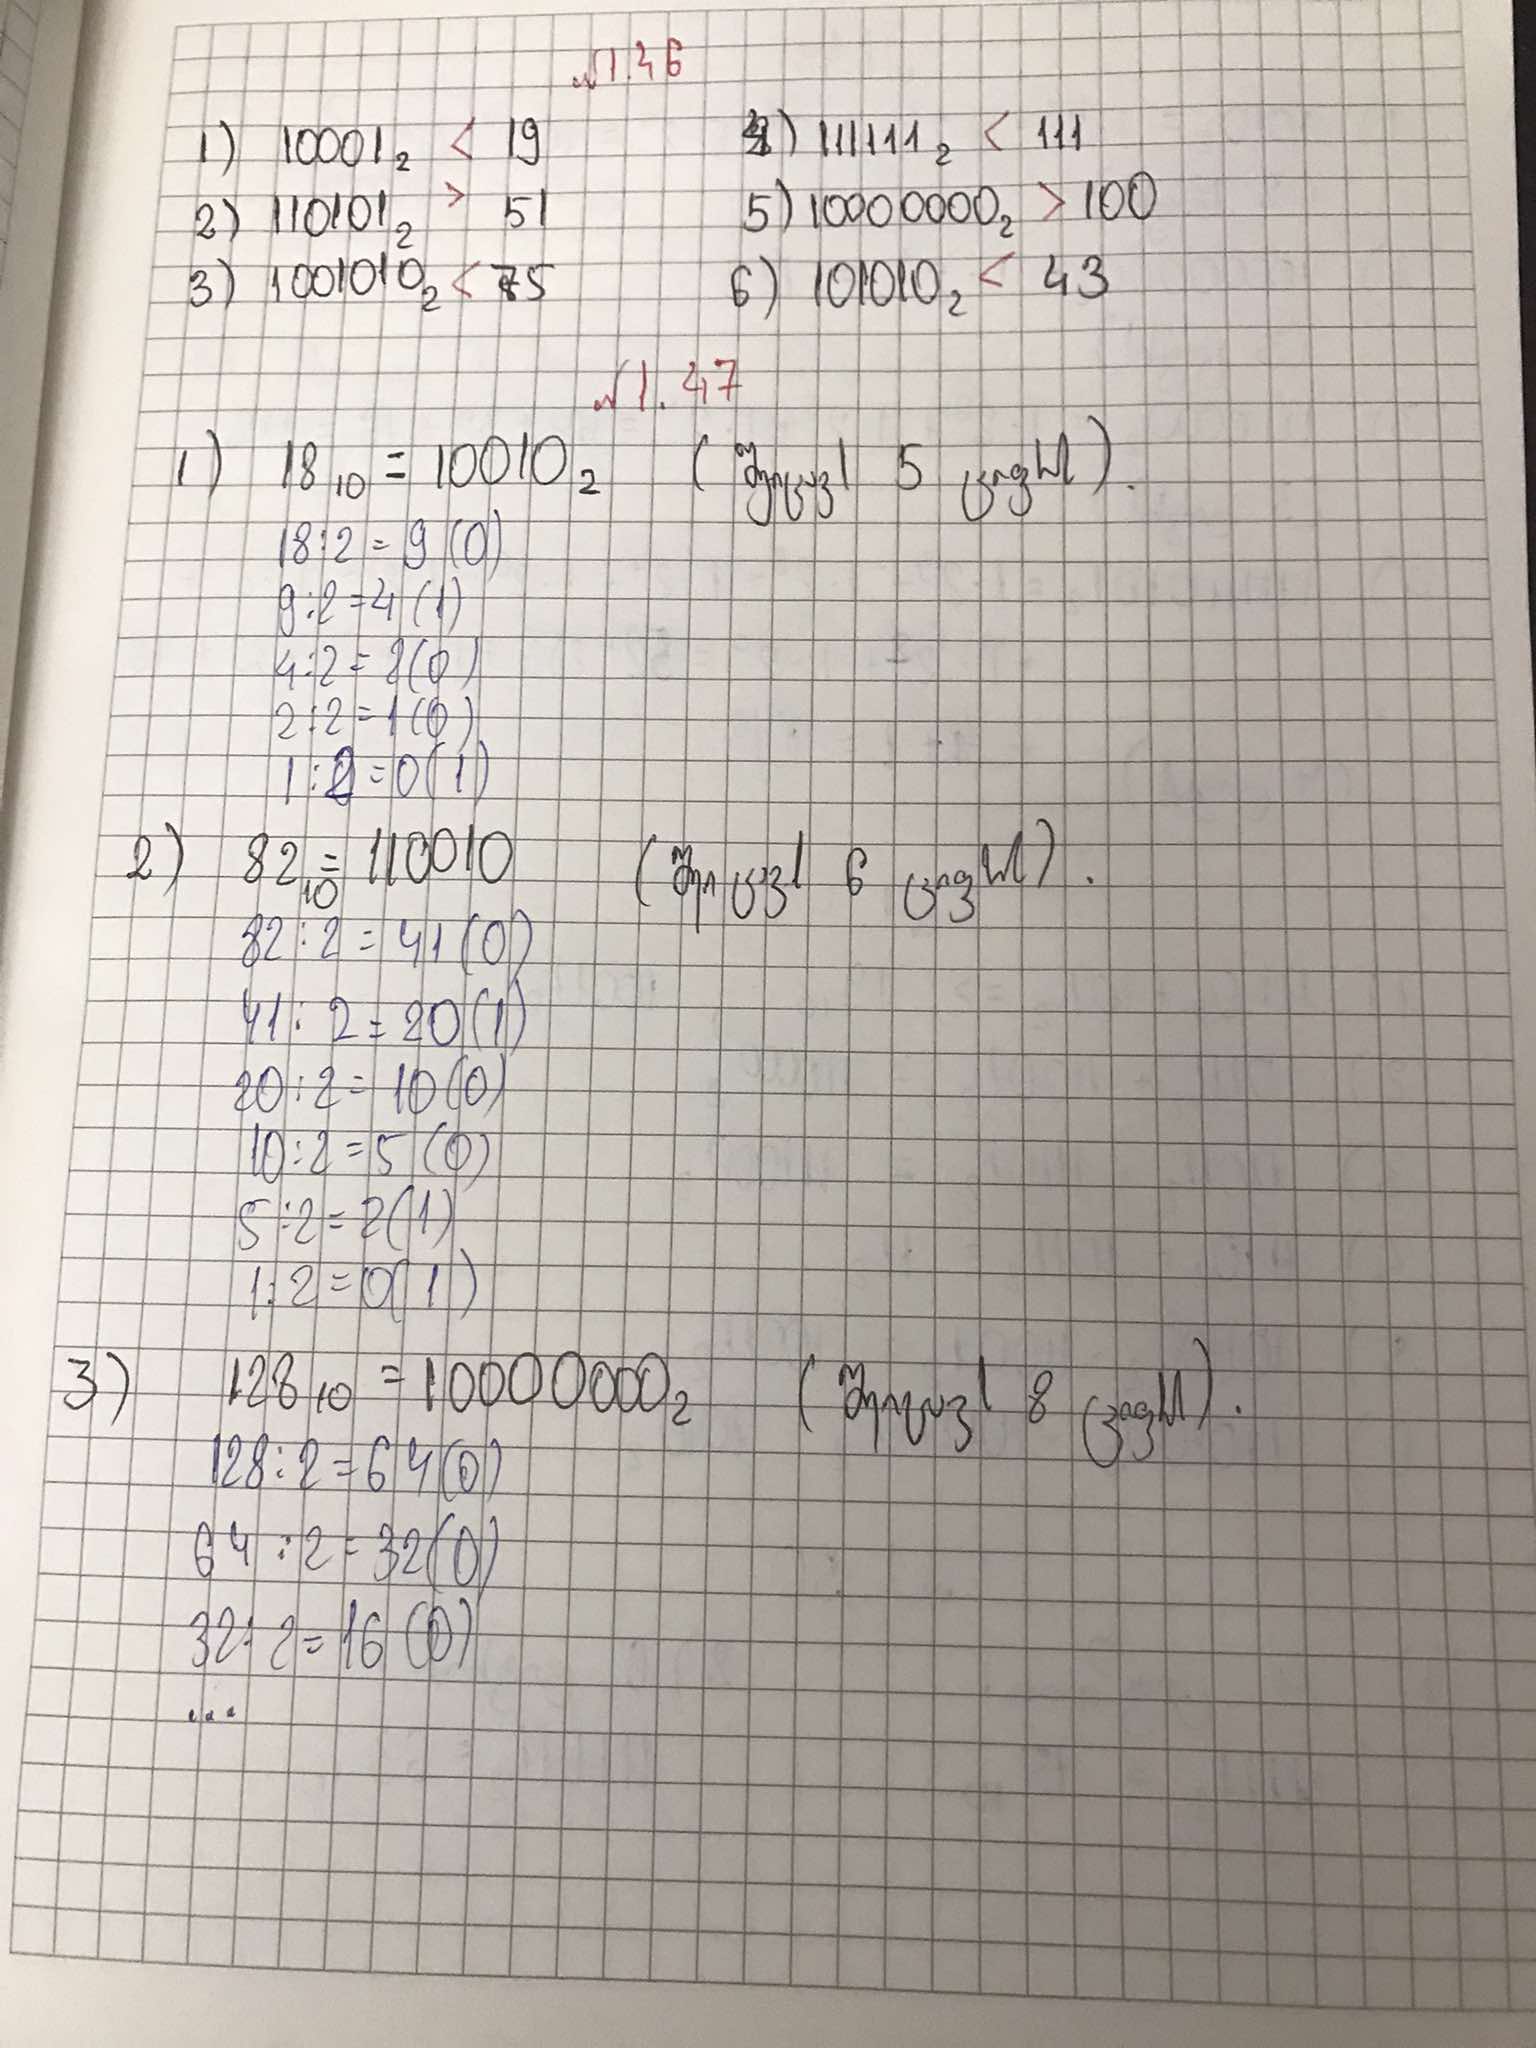 №1.46
1) 10001₂ < 19
2) 110101₂ > 51
3) 1001010₂ < 75
4) 111111₂ < 111
5) 10000000₂ > 100
6) 101010₂ < 43
№1.47
1) 18₁₀ = 10010₂ ( 5 ).
18:2=9(0)
9:2=4(1)
4:2=2(0)
2:2=1(0)
1:2=0(1)
2) 82₁₀ = 110010 ( 6 ).
82:2=41(0)
41:2=20(1)
20:2=10(0)
10:2=5(0)
5:2=2(1)
1:2=0(1)
3) 128₁₀ = 10000000₂ ( 8 ).
128:2=64(0)
64:2=32(0)
32:2=16(0)
...